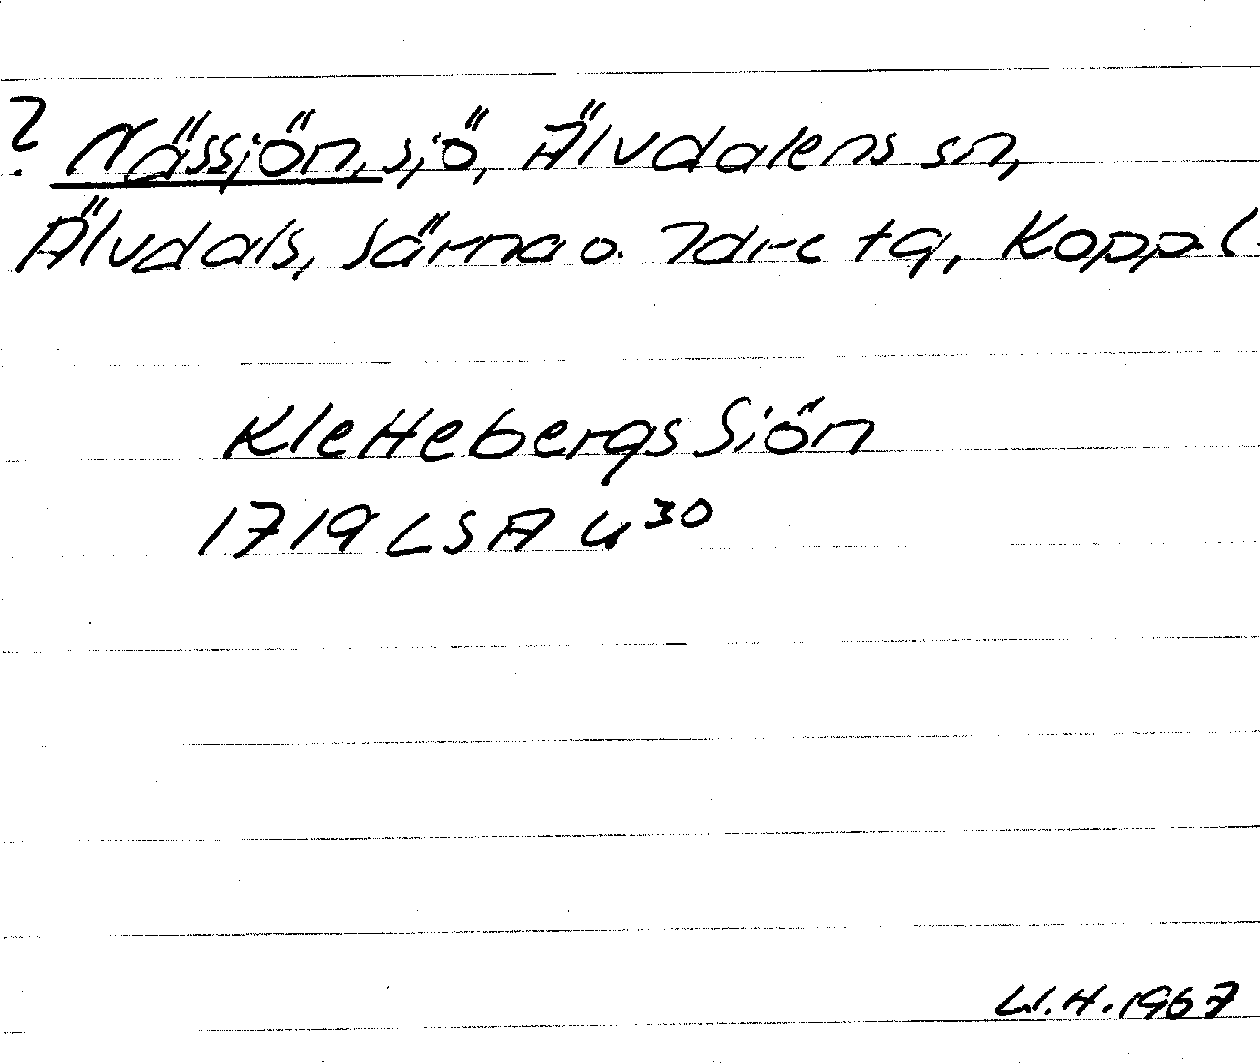 ? Nässjön, sjö, Älvdalens sn,
Älvdals, Särna o. Idre tg, Kopp.l.
Klettebergs Siön
1719 LSA U³⁰
W.H. 1967